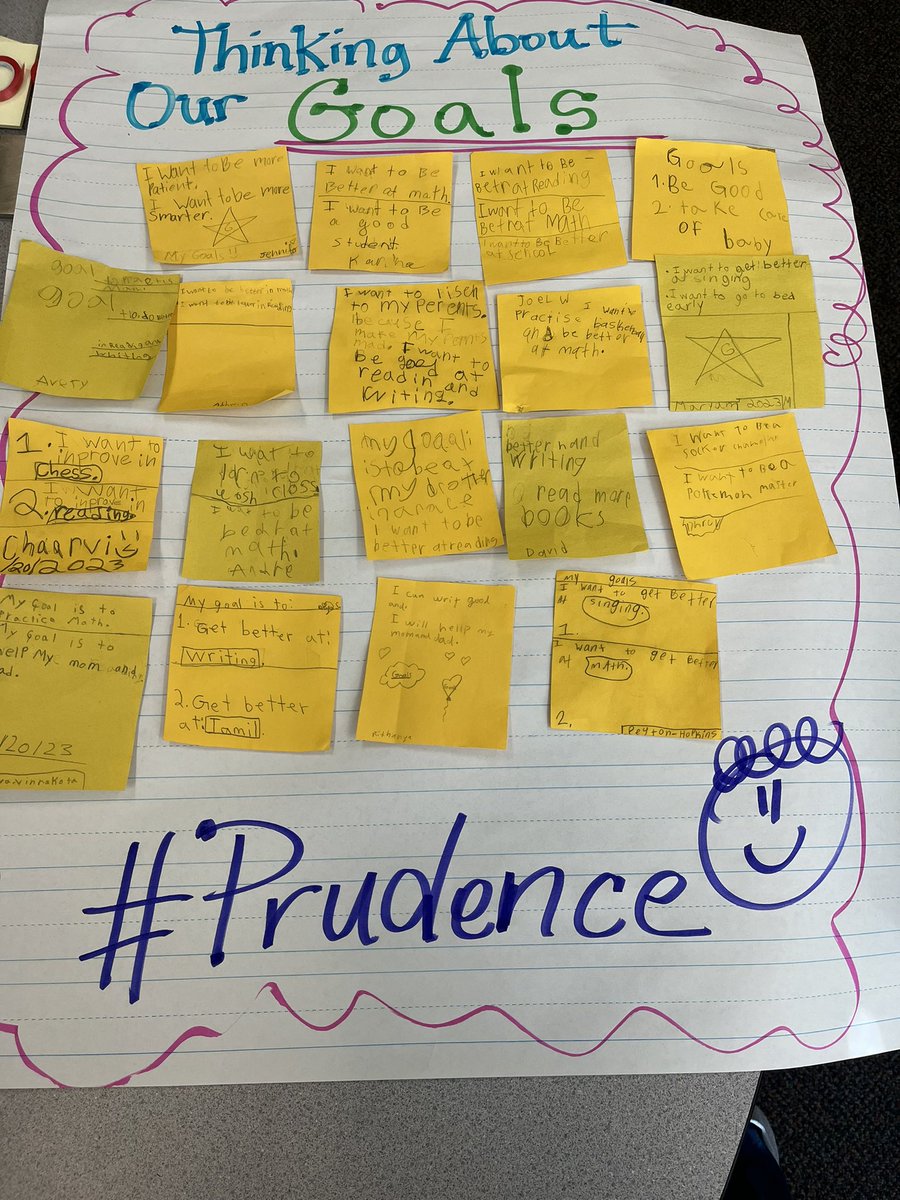 Thinking About
Our Goals
I Want to Be more
Patient.
I want to be more
Smarter.
G
My Goals!!
I want to Be
Better at math.
I want to Be
a good
student
I want to Be
Betrat Reading
I want to Be
Betrat Math
I want to Be Better
at school
Goals
1. Be Good
2. take care
OF baby
goal
goal
Avery
I want to be better in math
I want to be better in Reading
I want to lisen
to my Perents.
Because I
make My Perents
mad. I want
be good to
readin at
writing. and
JoeL W
Practise I want
basketball
and be better
at math.
• I want to get better
at singing
• I want to go to bed
early
G
Maryam 2023
1. I want to
inprove in
Chess.
2. I want
to inprove in
reading.
Chaarvi
/20/2023
I want to
I want to be
bedrat
math.
Andre
my goal
is to beat
my brother
in a race
I want to be
better at reading
better hand
writing
read more
books
David
I Want to Be a
socker
I want to Be a
Pokemon master
My Goal is to
Practice Math.
My Goal is to
help My mom and
dad.
/20/23
My goal is to:
1. Get better at:
Writing.
2. Get better
at: Tamil.
I can writ good
and.
I will hellp my
mom and dad.
Goals
Rithanya
my goals
I want to get Better
at singing.
1.
I want to get Better
at math.
2.
Peyton-Hopkins
#Prudence